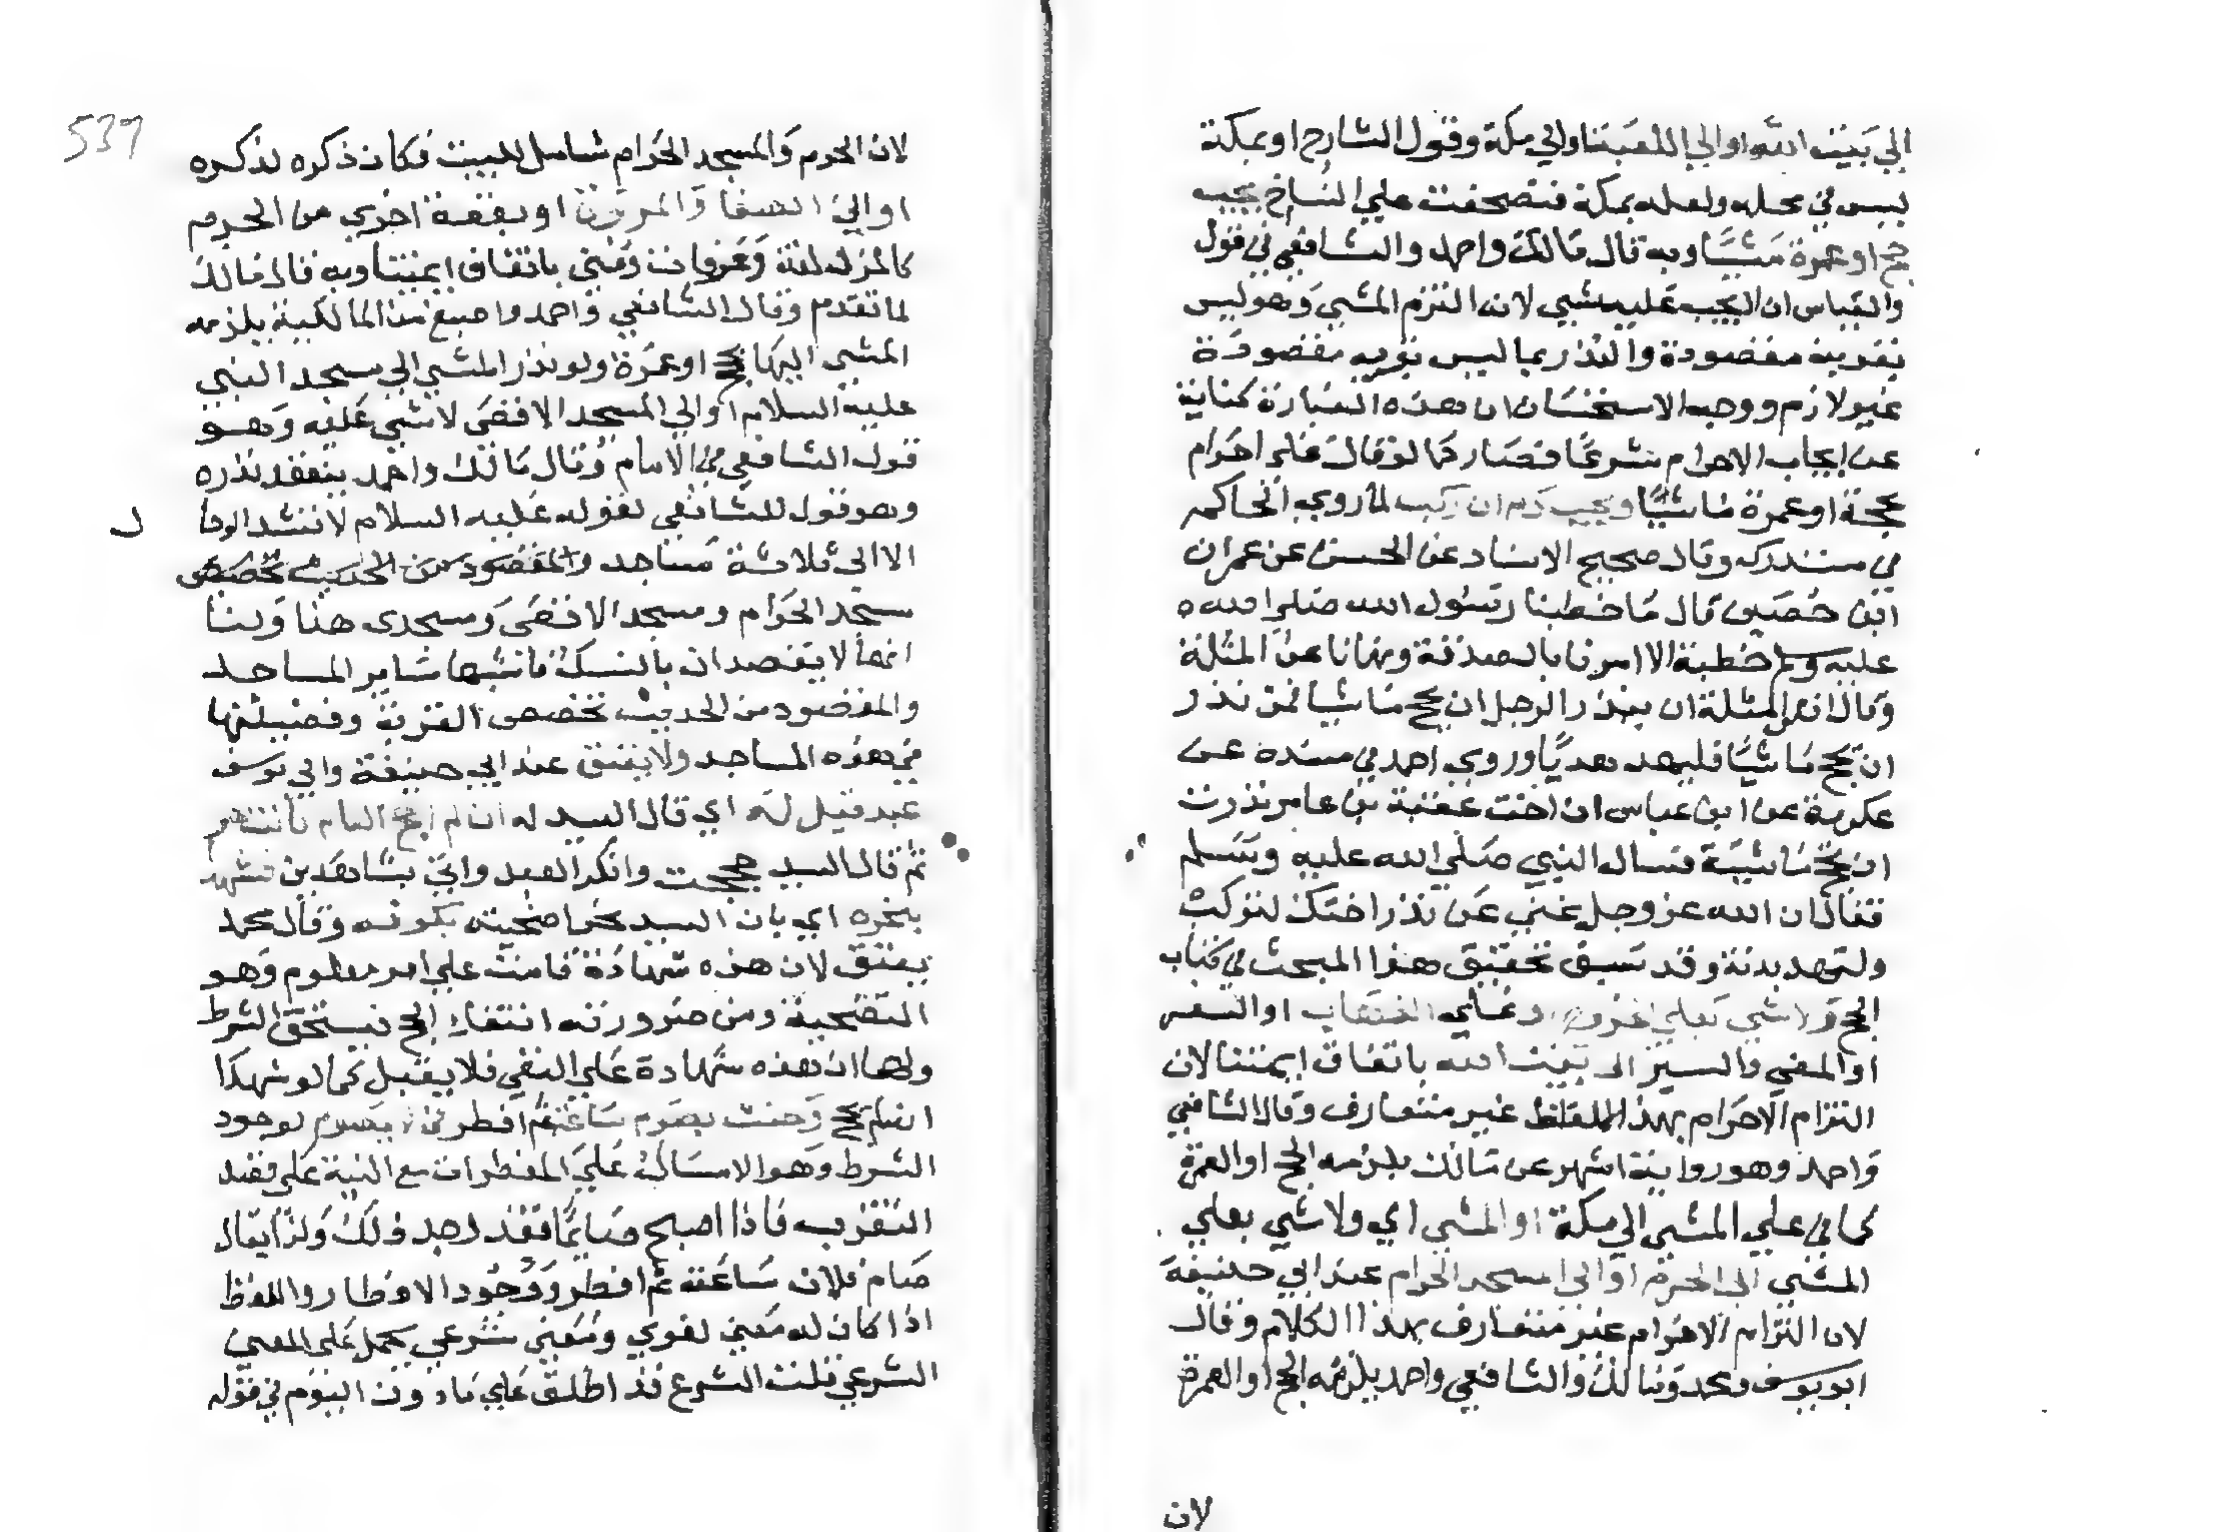 الي بيت الله او الي الكعبة او الي مكة وقول الشارح او بمكة
ليس في محله ولعله بمكة فتصحفت علي النساخ يجب
حج او عمرة مشيا وبه قال مالك واحمد والشافعي في قول
والقياس ان لا يجب عليه شي لانه التزم المشي وهو ليس
بقربة مقصودة والنذر بما ليس بقربة مقصودة
غير لازم ووجه الاستحسان ان هذه العبارة كناية
عن ايجاب الاحرام شرعا فصار كما لو قال علي احرام
بحجة او عمرة ماشيا ويجب دم ان ركب لما روي الحاكم
في مستدركه وقال صحيح الاسناد عن الحسن عن عمران
ابن حصين قال ما خطبنا رسول الله صلي الله
عليه وسلم خطبة الا امرنا بالصدقة ونهانا عن المثلة
وقال ان المثلة ان ينذر الرجل ان يحج ماشيا فمن نذر
ان يحج ماشيا فليهد هديا وروي احمد في مسنده عن
عكرمة عن ابن عباس ان اخت عقبة بن عامر نذرت
ان تحج ماشية فسال النبي صلي الله عليه وسلم
فقال ان الله عز وجل غني عن نذر اختك لتركب
ولتهد بدنة وقد سبق تحقيق هذا المبحث في كتاب
الحج ولا شي بعلي الخروج او الذهاب او السفر
او المضي والسير الي بيت الله باتفاق ايمتنا لان
التزام الاحرام بهذا اللفظ غير متعارف وقال الشافعي
واحمد وهو رواية اشهر عن مالك يلزمه الحج او العمرة
كما في علي المشي الي مكة او المشي اي ولا شي بعلي
المشي الي الحرم او الي المسجد الحرام عند ابي حنيفة
لان التزام الاحرام غير متعارف بهذا الكلام وقال
ابو يوسف ومحمد ومالك والشافعي واحمد يلزمه الحج او العمرة
لان
537
لان الحرم والمسجد الحرام شامل للبيت فكان ذكره لذكره
او الي الصفا والمروة او بقعة اخري من الحرم
كالمزدلفة وعرفات ومني باتفاق ايمتنا وبه قال مالك
لما تقدم وقال الشافعي واحمد واصبغ من المالكية يلزمه
المشي اليها بحج او عمرة ولو نذر المشي الي مسجد النبي
عليه السلام او الي المسجد الاقصي لا شي عليه وهو
قول الشافعي في الام وقال مالك واحمد ينعقد نذره
وهو قول للشافعي لقوله عليه السلام لا تشد الرحا
ل
الا الي ثلاثة مساجد والمقصود من الحديث تخصيص
مسجد الحرام ومسجد الاقصي ومسجدي هذا ولنا
انهما لا يقصدان بالنسك فاشبها ساير المساجد
والمقصود من الحديث تخصص القربة وفضيلتها
في هذه المساجد ولا يعتق عند ابي حنيفة وابي يوسف
عبد قيل له اي قال السيد له ان لم احج العام فانت حر
ثم قال السيد حججت وانكر العبد واتي بشاهدين فشهد
بنحره اي بان السيد نحر اضحيته بكوفة وقال محمد
يعتق لان هذه شهادة قامت علي امر معلوم وهو
التضحية ومن ضرورته انتفاء الحج فيستحق الشرط
ولهما ان هذه شهادة علي النفي فلا يقبل كما لو شهدا
انه لم يحج وحنث بصوم ساعة ثم افطر في لا يصوم لوجود
الشرط وهو الامساك علي المفطرات مع النية علي قصد
التقرب فاذا اصبح صايما فقد وجد ذلك ولذا يقال
صام فلان ساعة ثم افطر ووجود الافطار واللفظ
اذا كان له معني لغوي ومعني شرعي يحمل علي المعني
الشرعي قلت الشرع قد اطلق علي ما دون اليوم في قوله